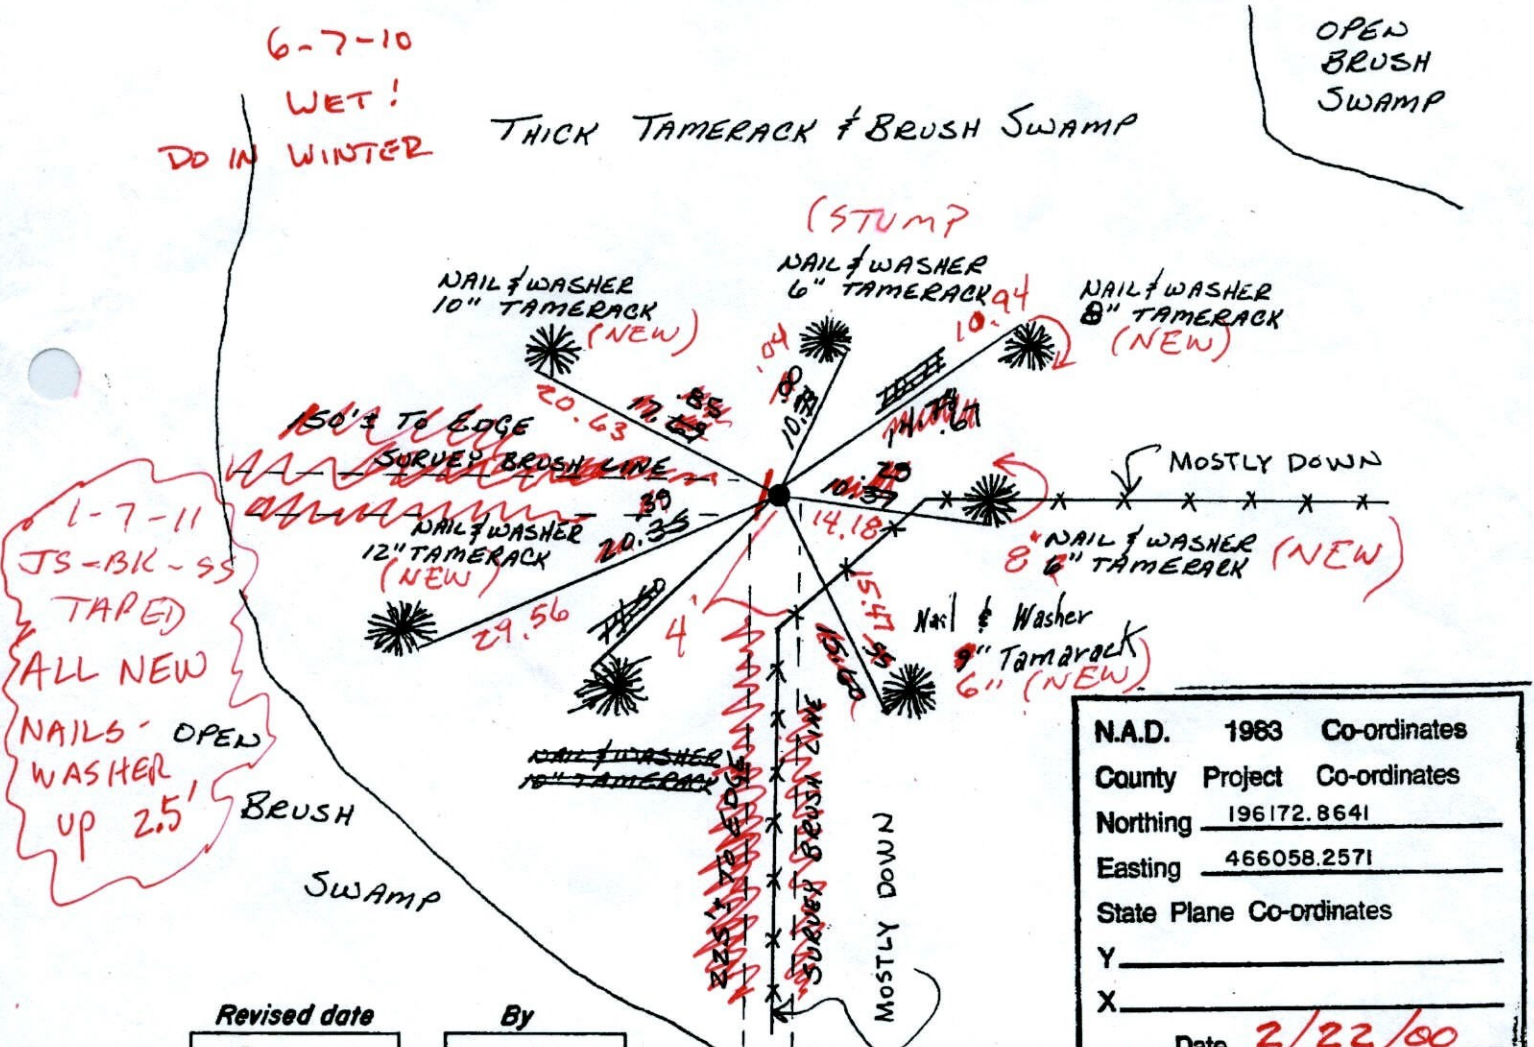 6-7-10
WET!
DO IN WINTER
THICK TAMERACK & BRUSH SWAMP
OPEN
BRUSH
SWAMP
(STUMP
NAIL & WASHER
10" TAMERACK
(NEW)
NAIL & WASHER
6" TAMERACK
NAIL & WASHER
8" TAMERACK
(NEW)
20.63
.85
.04
10.94
150'± TO EDGE
SURVEY BRUSH LINE
.67
MOSTLY DOWN
14.18
NAIL & WASHER
12" TAMERACK
(NEW)
20.35
29.56
NAIL & WASHER
8" 6" TAMERACK (NEW)
15.47
Nail & Washer
9" Tamarack
6" (NEW)
4'
15.60
NAIL & WASHER
10" TAMERACK
225'± TO EDGE
SURVEY BRUSH LINE
MOSTLY DOWN
1-7-11
JS-BK-SS
TAPED
ALL NEW
NAILS-
WASHER
UP 2.5'
OPEN
BRUSH
SWAMP
N.A.D. 1983 Co-ordinates
County Project Co-ordinates
Northing 196172.8641
Easting 466058.2571
State Plane Co-ordinates
Y
X
Date 2/22/00
Revised date
By